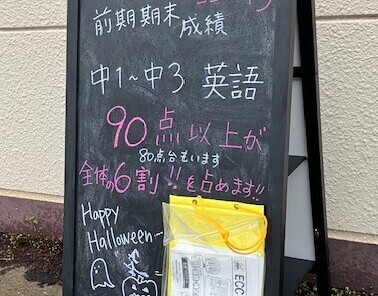 前期期末
成績
中1～中3 英語
90点以上が
80点台もいます
全体の6割!!を占めます!!
Happy
Halloween
ECC